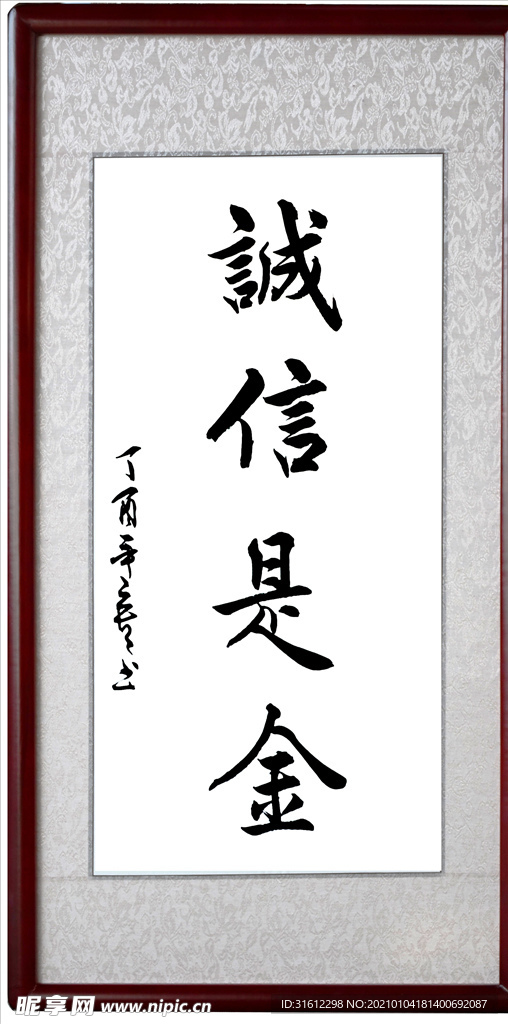 誠信是金
丁酉年
昵享网 www.nipic.cn
ID:31612298 NO:20210104181400692087